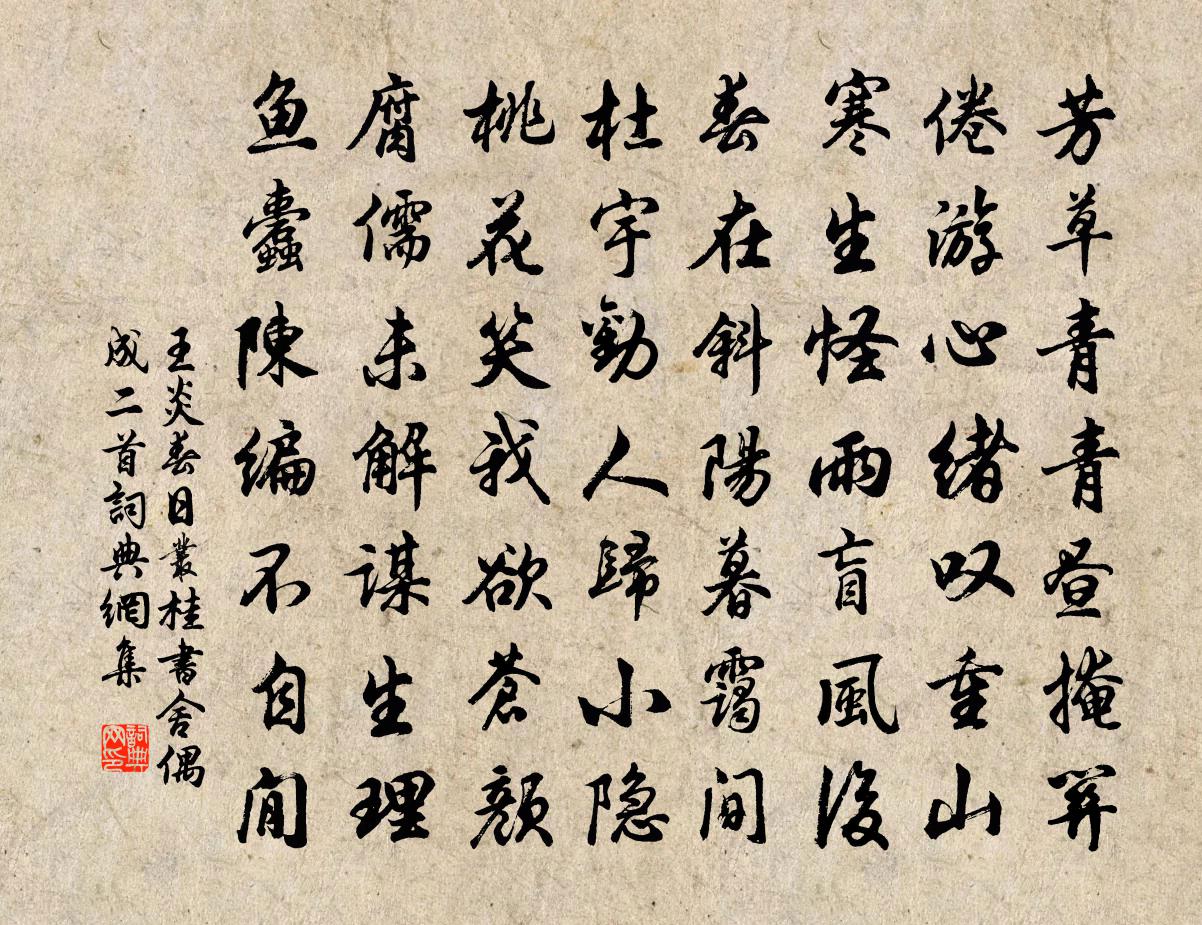 芳草青青昼掩關
倦游心緒叹重山
寒生怪雨盲風後
春在斜陽暮靄間
杜宇勸人歸小隐
桃花笑我欲蒼顔
腐儒未解謀生理
鱼蠹陳編不自閒
王炎春日叢桂書舍偶
成二首詞典網集
詞典网印